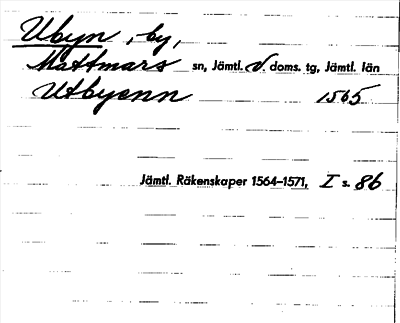 Ubyn, by,
Mattmars sn, Jämtl. V. doms. tg, Jämtl. län
Utbyenn 1565
Jämtl. Räkenskaper 1564–1571, I s. 86